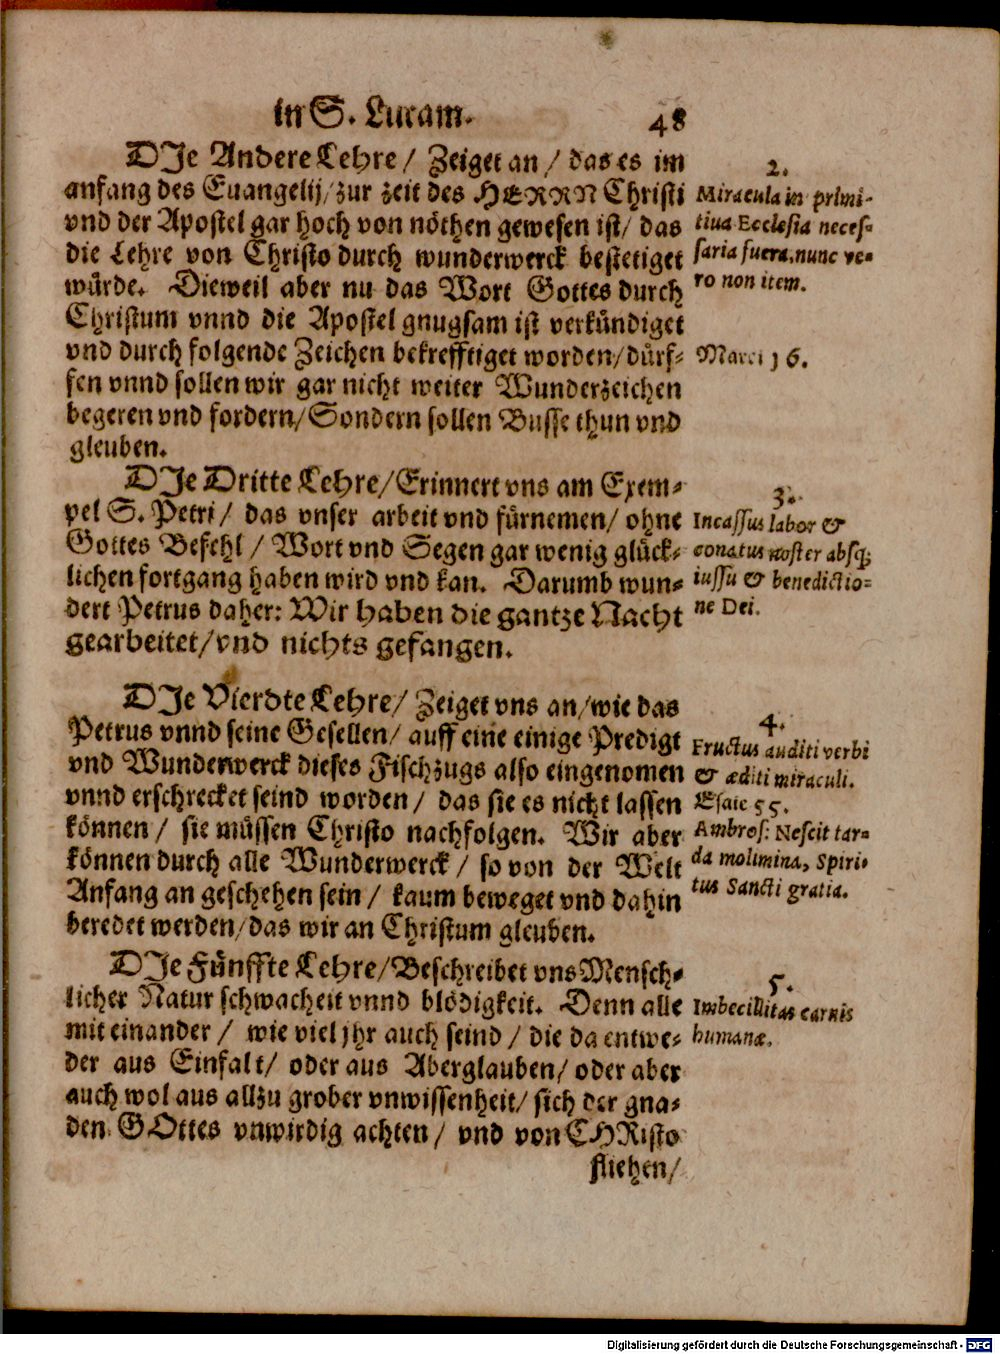 in S. Lucam.
48
DJe Andere Lehre / Zeiget an / das es im
anfang des Euangelij / zur zeit des HERRN Christi
vnd der Apostel gar hoch von nöthen gewesen ist / das
die Lehre von Christo durch wunderwerck bestetiget
würde. Dieweil aber nu das Wort Gottes durch
Christum vnnd die Apostel gnugsam ist verkündiget
vnd durch folgende Zeichen bekrefftiget worden / dürf-
fen vnnd sollen wir gar nicht weiter Wunderzeichen
begeren vnd fordern / Sondern sollen Busse thun vnd
gleuben.
2.
Miracula in primi-
tiua Ecclesia neces-
saria fuerã, nunc ve-
ro non item.
Marci 16.
DJe Dritte Lehre / Erinnert vns am Exem-
pel S. Petri / das vnser arbeit vnd fürnemen / ohne
Gottes Befehl / Wort vnd Segen gar wenig glück-
lichen fortgang haben wird vnd kan. Darumb wun-
dert Petrus daher: Wir haben die gantze Nacht
gearbeitet / vnd nichts gefangen.
3.
Incassus labor &
conatus noster absq;
iussu & benedictio-
ne Dei.
DJe Vierdte Lehre / Zeiget vns an / wie das
Petrus vnnd seine Gesellen / auff eine einige Predigt
vnd Wunderwerck dieses Fischzugs also eingenomen
vnnd erschrecket seind worden / das sie es nicht lassen
können / sie müssen Christo nachfolgen. Wir aber
können durch alle Wunderwerck / so von der Welt
Anfang an geschehen sein / kaum beweget vnd dahin
beredet werden / das wir an Christum gleuben.
4.
Fructus auditi verbi
& æditi miraculi.
Esaie 55.
Ambros: Nescit tar-
da molimina, Spiri-
tus Sancti gratia.
DJe Fünffte Lehre / Beschreibet vns Mensch-
licher Natur schwacheit vnnd blödigkeit. Denn alle
mit einander / wie viel jhr auch seind / die da entwe-
der aus Einfalt / oder aus Aberglauben / oder aber
auch wol aus allzu grober vnwissenheit / sich der gna-
den GOttes vnwirdig achten / vnd von CHRisto
fliehen /
5.
Imbecillitas carnis
humanæ.
Digitalisierung gefördert durch die Deutsche Forschungsgemeinschaft - DFG